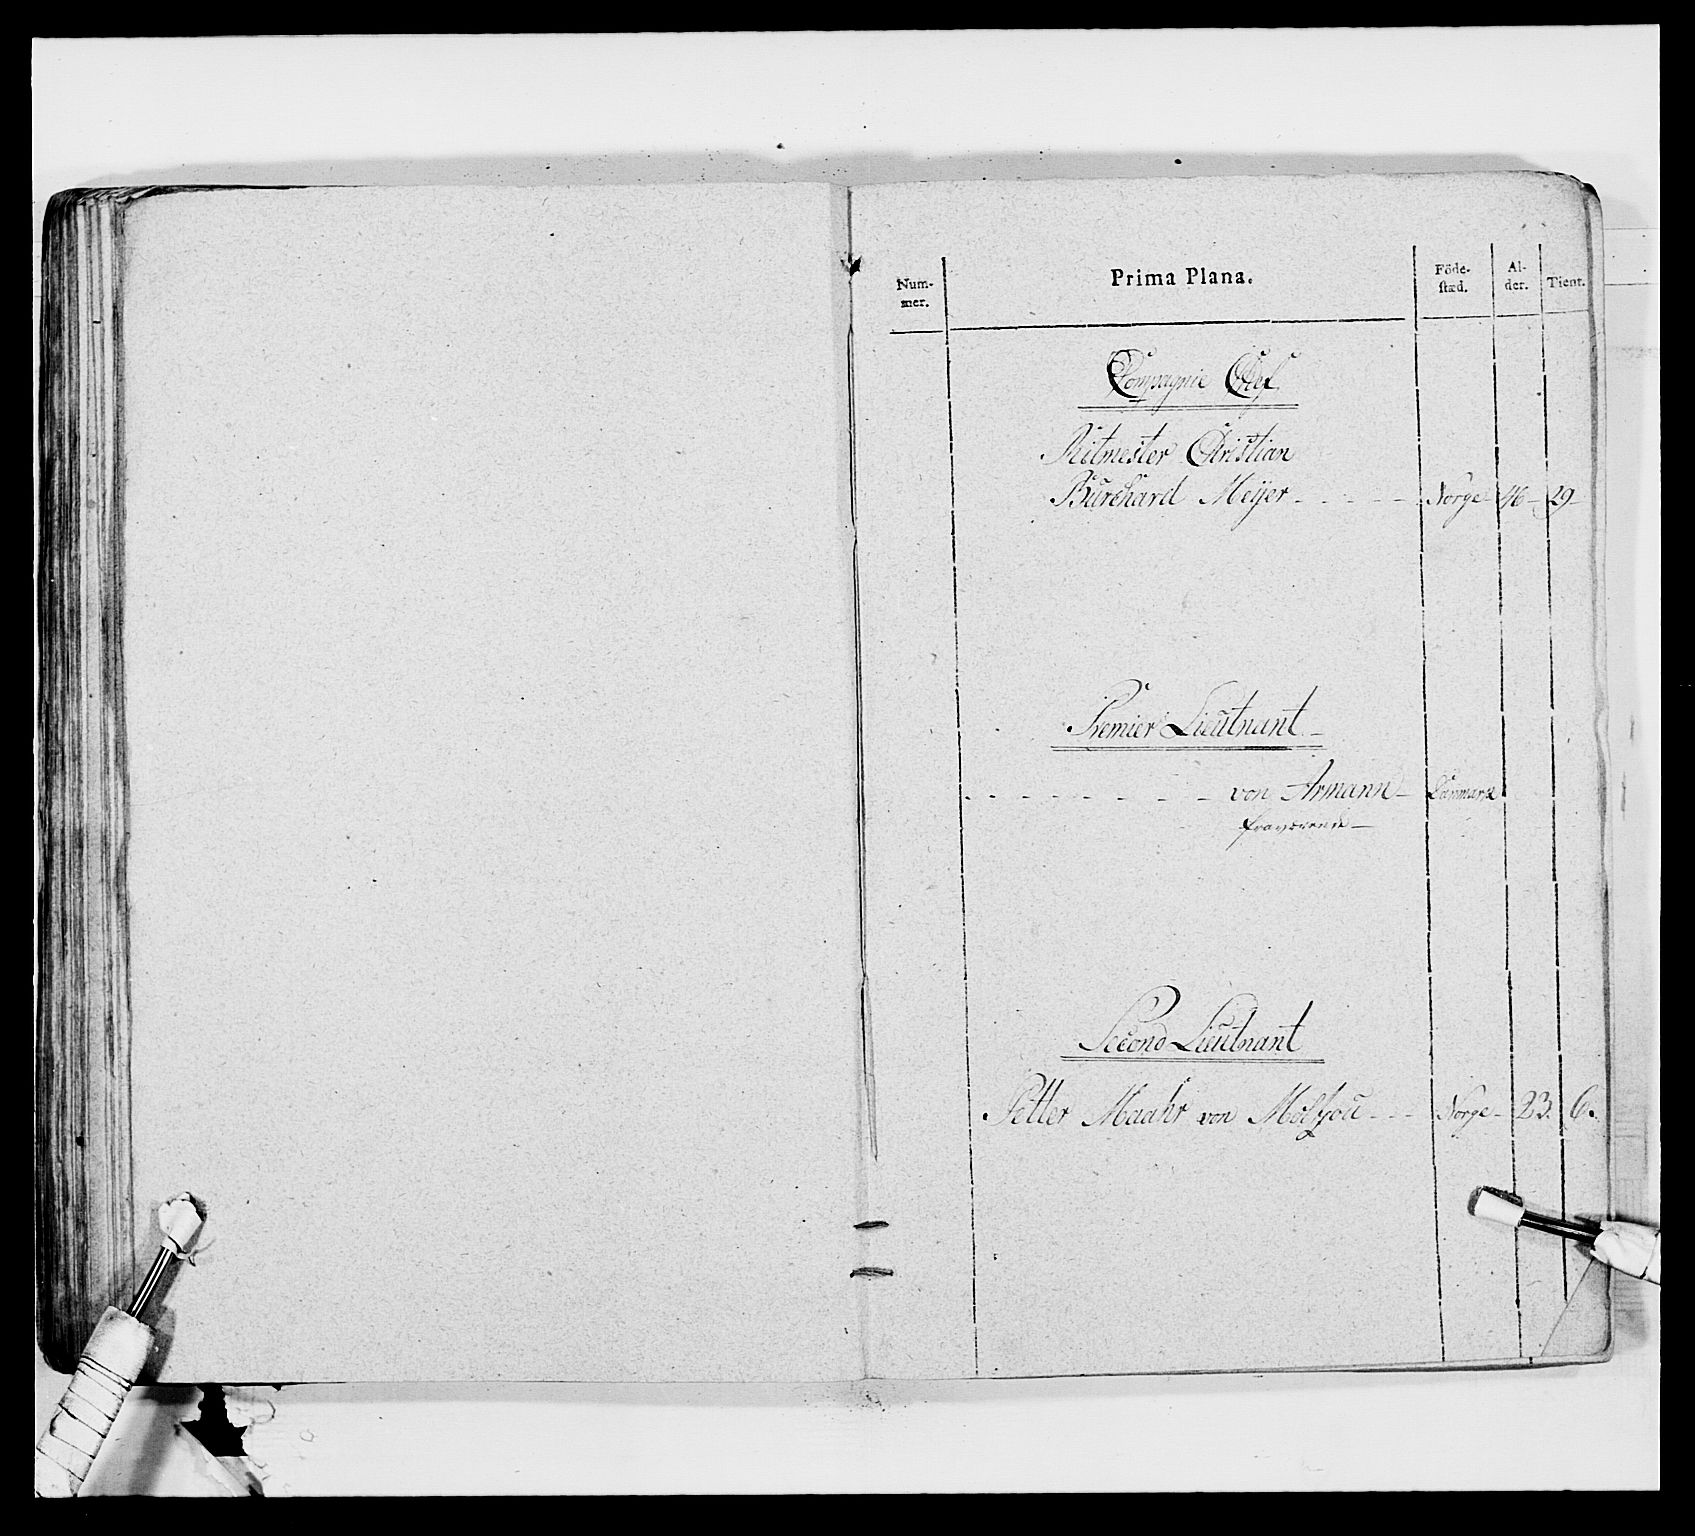 Num-
mer.
Prima Plana.
Föde-
stæd.
Al-
der.
Tient.
Compagnie Chef
Ritmester Christian
Burchard Meÿer - - - - - Norge 46 - 29 -
Premier Lieutnant -
- - - - - - - - von Armann - Danmark
fraværende -
Second Lieutnant
Petter Maahr von - - - Norge - 23. 6.